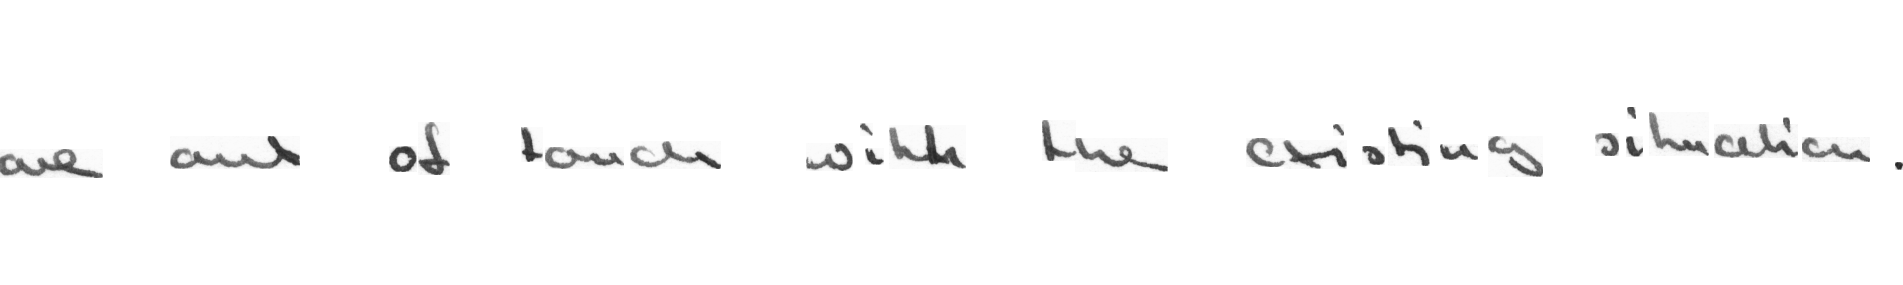 are out of touch with the existing situation.